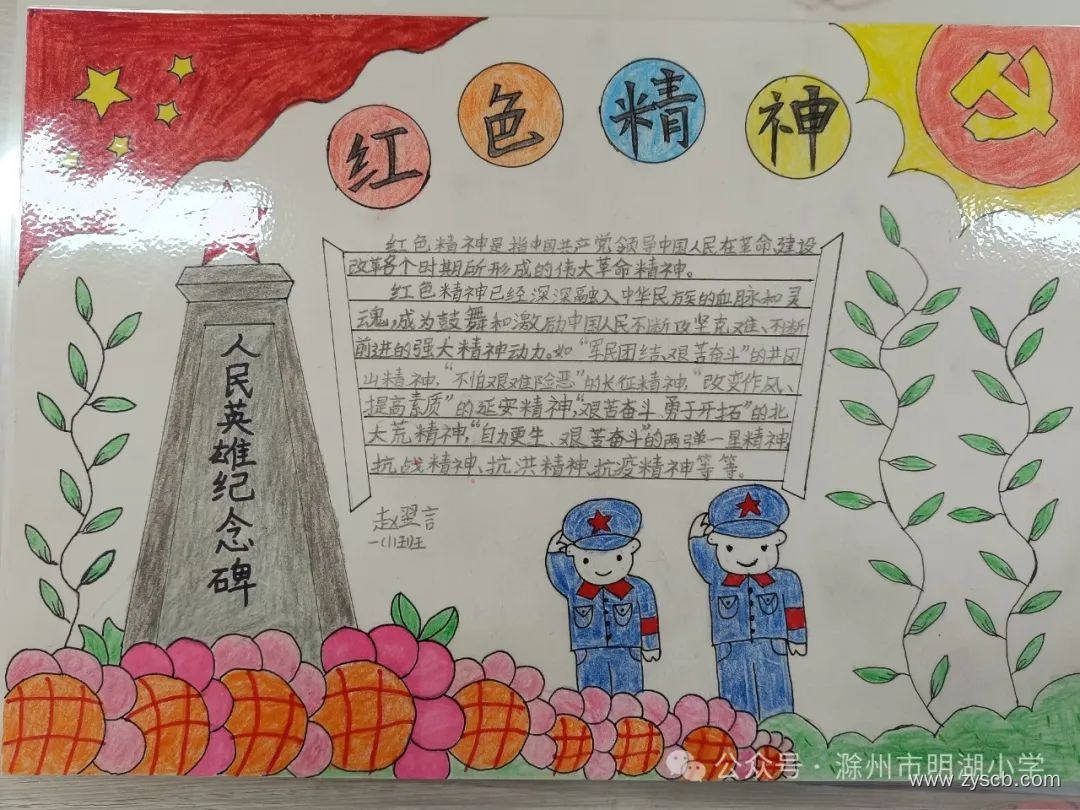 红色精神
红色精神是指中国共产党领导中国人民在革命、建设
改革各个时期所形成的伟大革命精神。
红色精神已经深深融入中华民族的血脉和灵
魂,成为鼓舞和激励中国人民不断攻坚克难、不断
前进的强大精神动力。如“军民团结、艰苦奋斗”的井冈
山精神,“不怕艰难险恶”的长征精神,“改变作风、
提高素质”的延安精神,“艰苦奋斗、勇于开拓”的北
大荒精神,“自力更生、艰苦奋斗”的两弹一星精神
抗战精神、抗洪精神、抗疫精神等等。
人民英雄纪念碑
赵翌言
一(1)班
公众号·滁州市明湖小学
www.zyscb.com